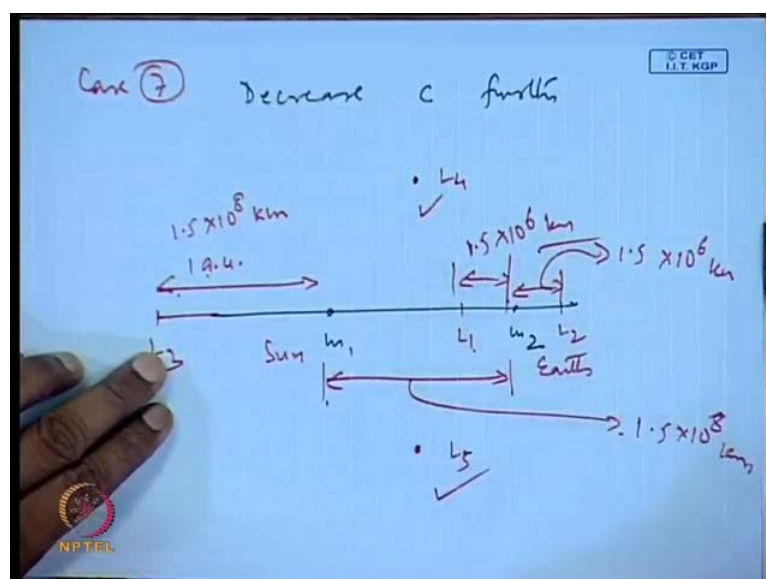 © CET
I.I.T. KGP
Case 7 Decrease C further
L4
1.5 × 10^8 km
1.5 × 10^6 km
1.5 × 10^6 km
1 a.u.
L3 Sun m1 L1 m2 L2
Earth
1.5 × 10^8 km
L5
NPTEL